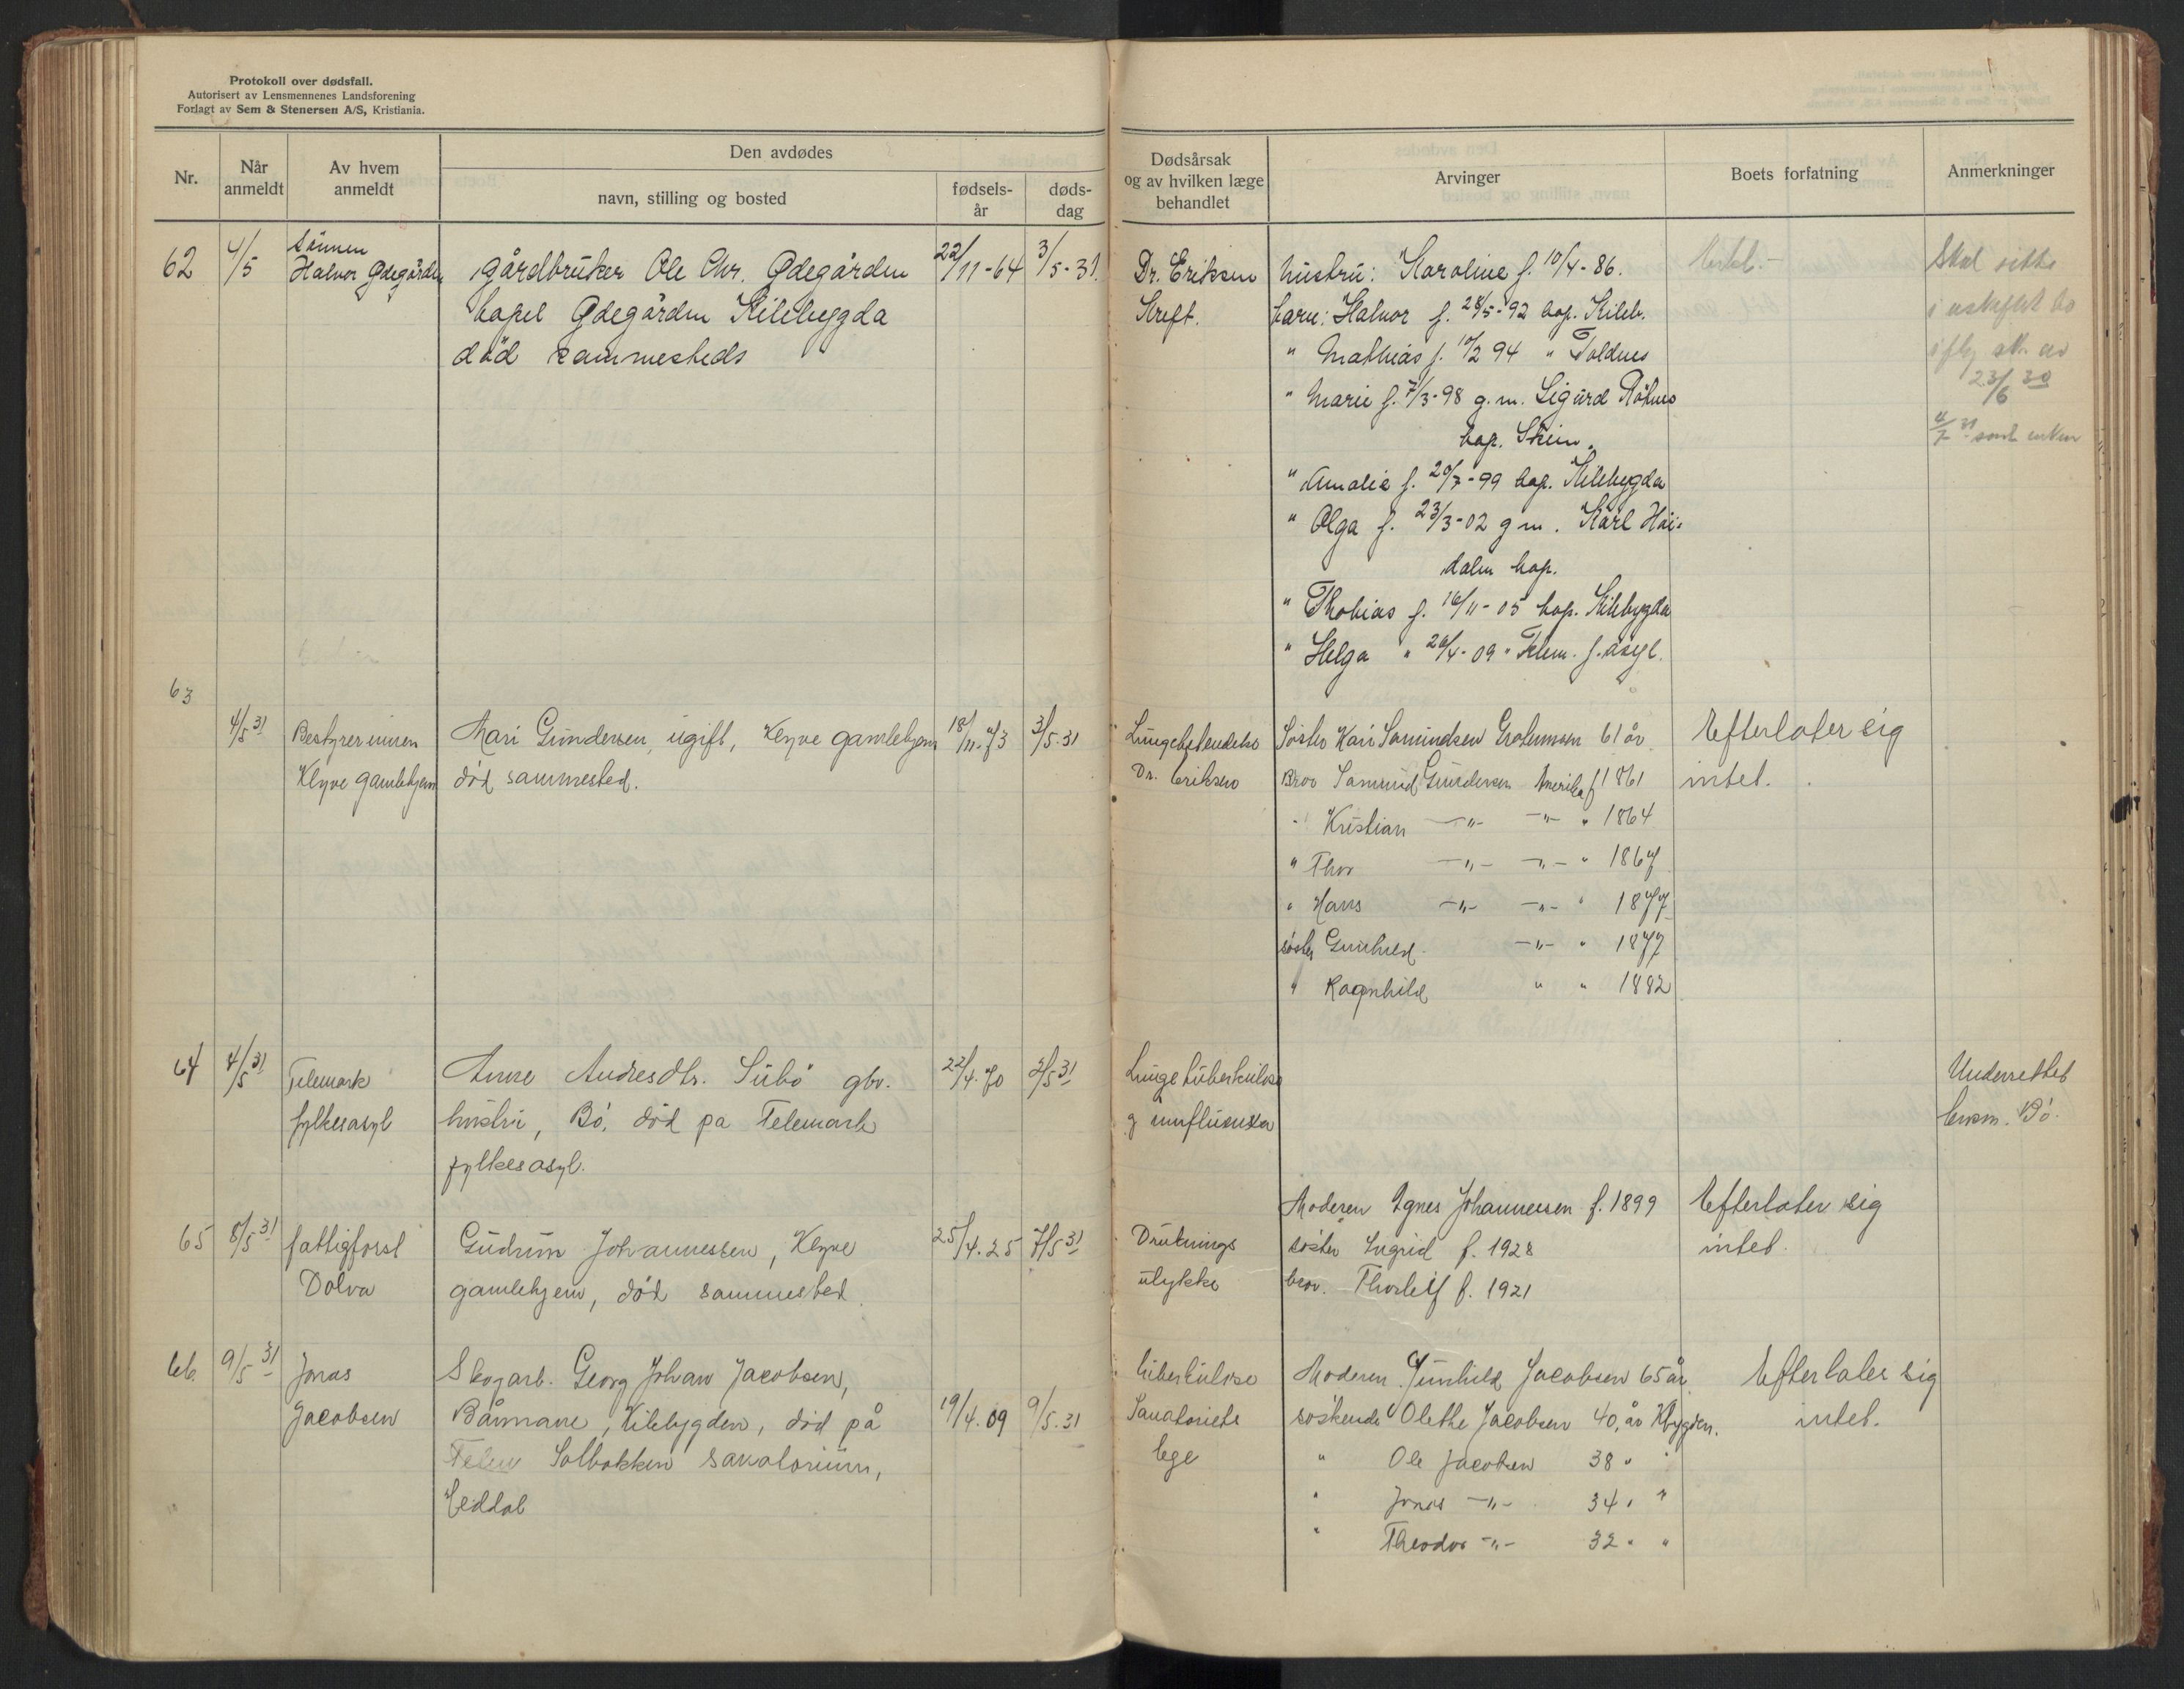 Protokoll over dødsfall.
Autorisert av Lensmennenes Landsforening
Forlagt av Sem & Stenersen A/S, Kristiania.
Nr.
Når anmeldt
Av hvem anmeldt
Den avdødes
navn, stilling og bosted
fødsels-år
døds-dag
Dødsårsak
og av hvilken læge
behandlet
Arvinger
Boets forfatning
Anmerkninger
62
4/5
Sönnen
Halvor Ødegården
gårdbruker Ole Chr. Ødegården
bopel Ødegården Kilebygda
död sammesteds
22/11-64
3/5-31.
Dr. Eriksen
Kreft.
hustru: Karoline f. 10/4-86.
barn: Halvor f. 28/5-92 bop. Kileb.
" Mathias f. 10/2 94 " Toldnes
" Marie f. 7/3-98 g.m. Sigurd
bop. Skien.
" Amalie f. 20/7-99 bop. Kilebygda
" Olga f. 23/3-02 g m. Karl Høi-
dalen bop.
" Thobias f. 16/11-05 bop. Kilebygda
" Helga " 26/4-09 " Telem. f. asyl.
Skal sitte
i uskiftet bo
av
23/6 30
63
4/5 31
Bestyrerinnen
Klyve gamlehjem
Mari Gundersen, ugift, Klyve gamlehjem
död sammested.
18/11-73
3/5-31
Lungebetendelse
Dr. Eriksen
Søster Kari Samundsen 61 år
Bror Samund Gundersen Amerika f 1861
- Kristian -"- -"- " 1864
" Thor -"- -"- " 1867
" Hans -"- -"- " 1877
søster Gunhild. -"- " 1877
" Ragnhild " " 1882
Efterlater sig
intet.
64
4/5 31
Telemark
fylkesasyl
Anne Andresdtr. Sübö gbr.
hustru, Bö, död pa Telemark
fylkesasyl.
22/4.70
2/5 31
Lungetuberkulose
g innfluensa
Underrettet
lensm. Bö.
65
8/5 31
fattigforst
Dolva
Gudrun Johannessen, Klyve
gamlehjem, död sammested.
25/4.25
7/5 31
Druknings
ulykke
Moderen Agnes Johannessen f. 1899
søster Ingrid f. 1928
bror. Thorleif f. 1921
Efterlater sig
intet.
66.
9/5 31
Jonas
Jacobsen
Skogarb. Georg Johan Jacobsen,
Bånmane, Kilebygden, död på
Telem Solbakken sanatorium,
Heddal
19/4.09
9/5.31
tuberkulose
Sanatoriets
lege
Moderen Gunhild Jacobsen 65 år.
søskende Olethe Jacobsen 40, år Kbygden.
" Ole Jacobsen 38 " "
" Jonas -"- 34 " "
" Theodor -"- 32 " "
Efterlater sig
intet.